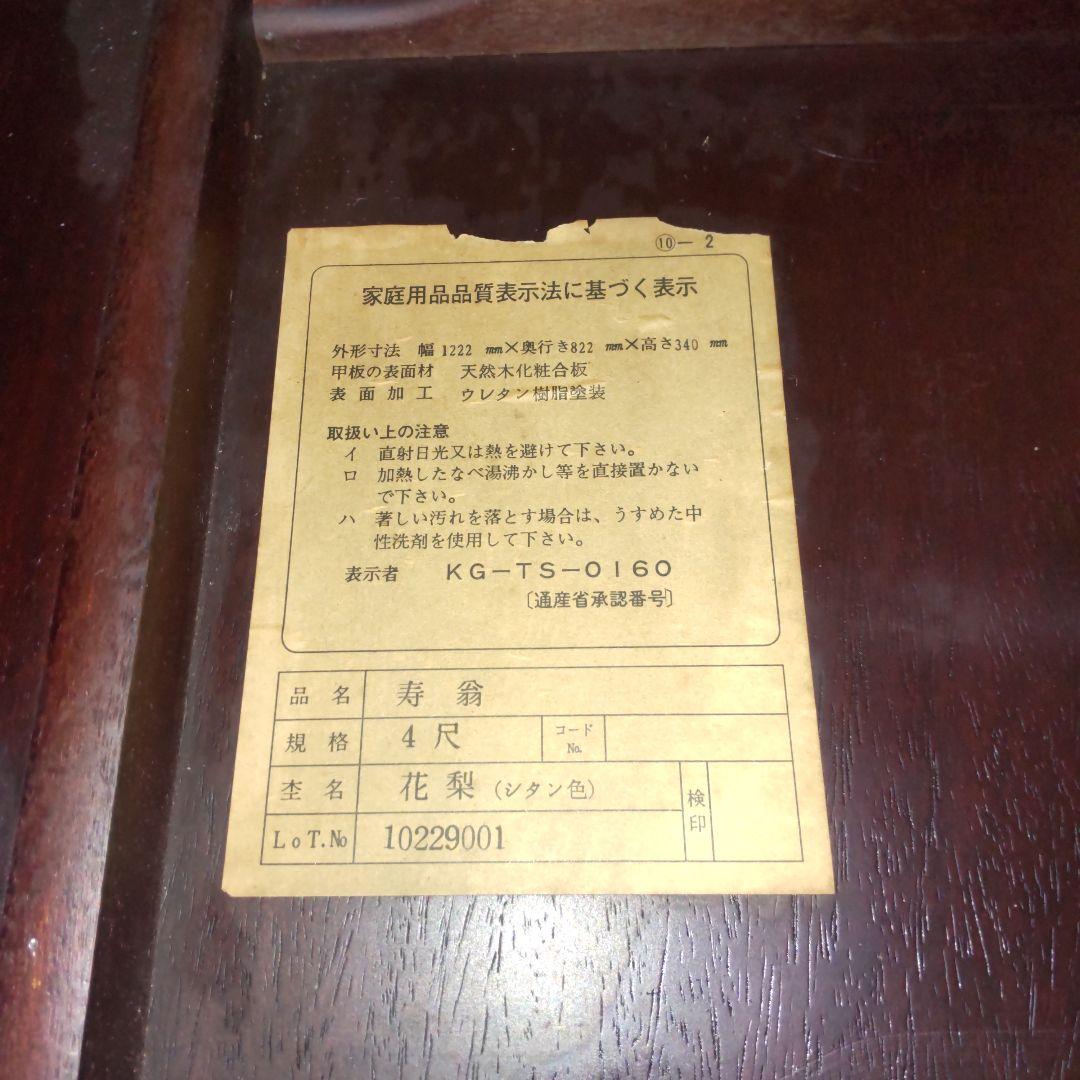 ⑩― 2
家庭用品品質表示法に基づく表示
外形寸法 幅 1222 ㎜×奥行き822 ㎜×高さ340 ㎜
甲板の表面材 天然木化粧合板
表面加工 ウレタン樹脂塗装
取扱い上の注意
イ 直射日光又は熱を避けて下さい。
ロ 加熱したなべ湯沸かし等を直接置かない
で下さい。
ハ 著しい汚れを落とす場合は、うすめた中
性洗剤を使用して下さい。
表示者 KG－TS－0160
〔通産省承認番号〕
品名 寿翁
規格 4尺 コードNo.
杢名 花梨(シタン色) 検印
LoT.No 10229001